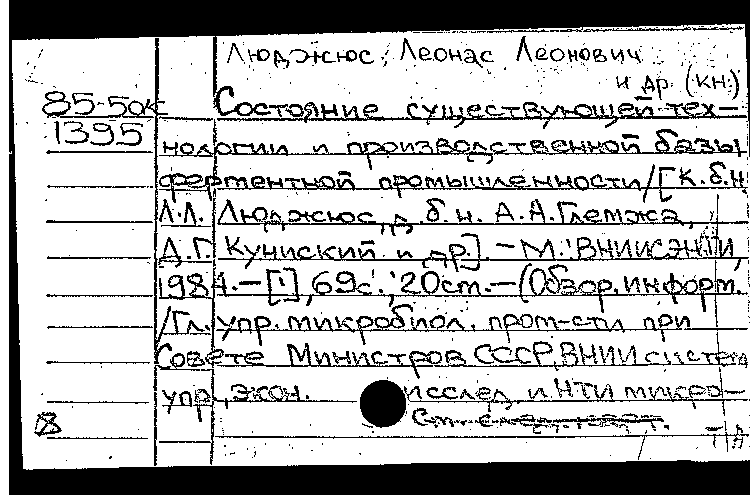 Люджюс, Леонас Леонович
и др. (кн.)
85-50к
1395
Состояние существующей тех-
нологии и производственной базы
ферментной промышленности/[К.б.н.
Л.Л. Люджюс, д.б.н. А.А. Глемжа,
Д.Г. Куниский и др.]. - М.: ВНИИСЭНТИ,
1984. - [1], 69с.; 20см. - (Обзор. информ.
/Гл. упр. микробиол. пром-сти при
Совете Министров СССР, ВНИИ систем
упр., экон. исслед. и НТИ микро-
См. след. карт.
Т А